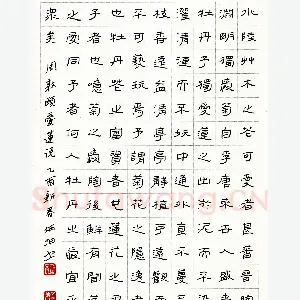 水陸艸木之花可愛者甚蕃晉陶
淵明獨愛菊自李唐來世人盛愛
牡丹予獨愛蓮之出淤泥而不染
濯清漣而不妖中通外直不蔓不
枝香遠益清亭亭淨植可遠觀而
不可褻玩焉予謂菊花之隱逸者
也牡丹花之富貴者也蓮花之君
子者也噫菊之愛陶後鮮有聞蓮
之愛同予者何人牡丹之愛宜乎
眾矣 周敦頤愛蓮說 乙酉新春